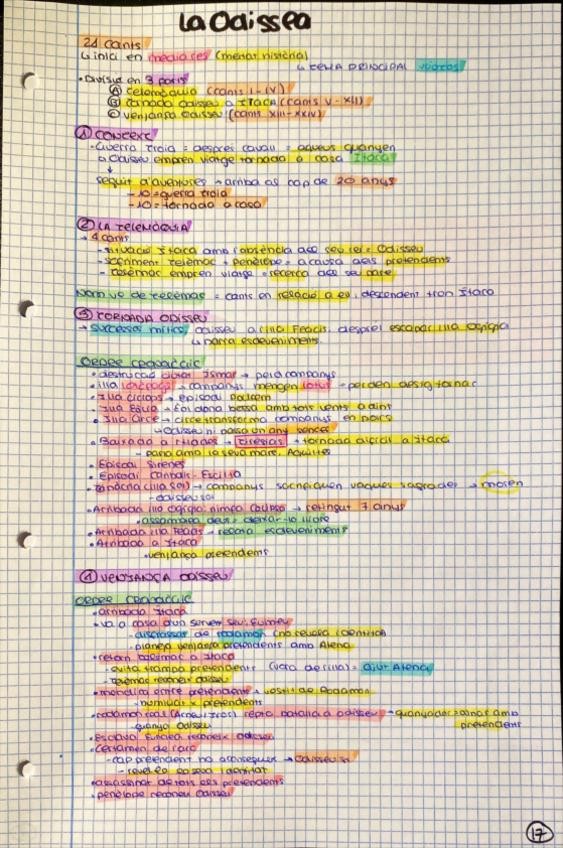 La Odissea
24 cants
↳ inici en medias res (menor història)
↳ TEMA PRINCIPAL
• Divisió en 3 parts
Ⓐ Telemàquia (cants I-IV)
Ⓑ tornada odisseu a ÍTACA (cants V-XII)
Ⓒ venjança odisseu (cants XIII-XXIV)
① CONTEXT
• Guerra troia = després cavall = aqueus guanyen
↳ Odisseu emprèn viatge tornada a casa Ítaca
↓
seguit d'aventures → arriba al cap de 20 anys
- 10 = guerra troia
- 10 = tornada a casa
② LA TELEMÀQUIA
→ 4 cants
- situació Ítaca amb l'absència del seu rei = Odisseu
- sofriment Telèmac + Penèlope = a causa dels pretendents
- Telèmac emprèn viatge = recerca del seu pare
de Telèmac = cants en relació a ell, descendent tron Ítaca
③ TORNADA ODISSEU
→ successos mítics odisseu a l'illa Feacis, després escapar illa ogígia
↳ narra esdeveniments.
ORDRE CRONOLÒGIC
• destrucció ciutat Ísmar → perd companys
• illa → companys mengen lotus → perden desig tornar
• Illa ciclops → episodi
• Illa Eòlia → Eol dona bossa amb tots vents a dins
• Illa Circe → circe transforma companys en porcs
↳ odisseu hi passa un any
• Baixada a l'Hades → tirèsias → tornada a Ítaca
- parla amb la seva mare, Aquil·les
• Episodi Sirenes
• Episodi Caribdis - Escil·la
• (illa sol) → companys sacrifiquen vaques sagrades → moren
- odisseu sol
• Arribada illa ogígia: nimfa Calipso → retingut 7 anys
- assemblea deus = deixar-lo lliure
• Arribada illa Feacis → relata esdeveniments
• Arribada a Ítaca
- venjança pretendents
④ VENJANÇA ODISSEU
ORDRE CRONOLÒGIC
• arribada Ítaca
• va a casa d'un servent seu: Eumeu
- disfressat de rodamón (no revela identitat)
- planeja venjança pretendents amb Atena
• retorn Telèmac a Ítaca
- evita trampa pretendents = ajut Atena
- Telèmac reconeix odisseu
• mendica entre pretendents + vestit de Rodamón
- humiliat x pretendents
• rodamón real (Arneu/Iros) repta batalla a odisseu → guanyador = sopar amb
pretendents
- guanya Odisseu
• Esclava reconeix odisseu
• certamen de l'arc
- cap pretendent ho aconsegueix → odisseu sí
- revela la seva identitat
• assassinat de tots els pretendents
• penèlope reconeix Odisseu
17